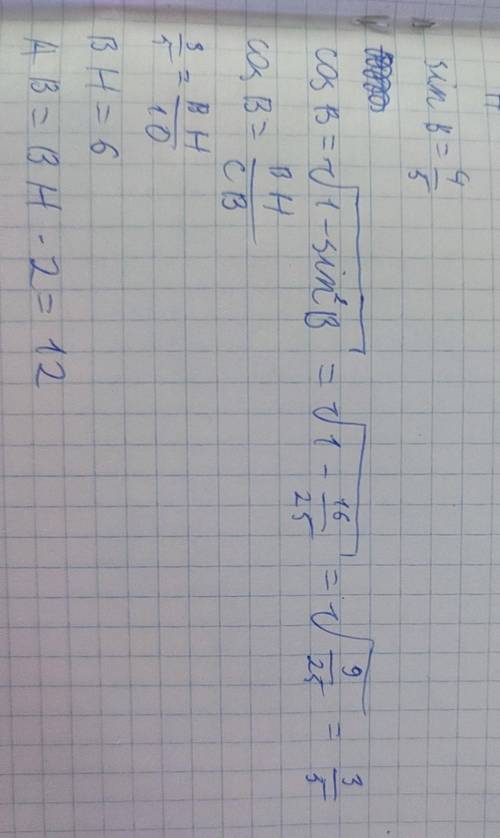 H
sin B = 4/5
cos B = √(1 - sin²B) = √(1 - 16/25) = √(9/25) = 3/5
cos B = BH/CB
3/5 = BH/10
BH = 6
AB = BH · 2 = 12